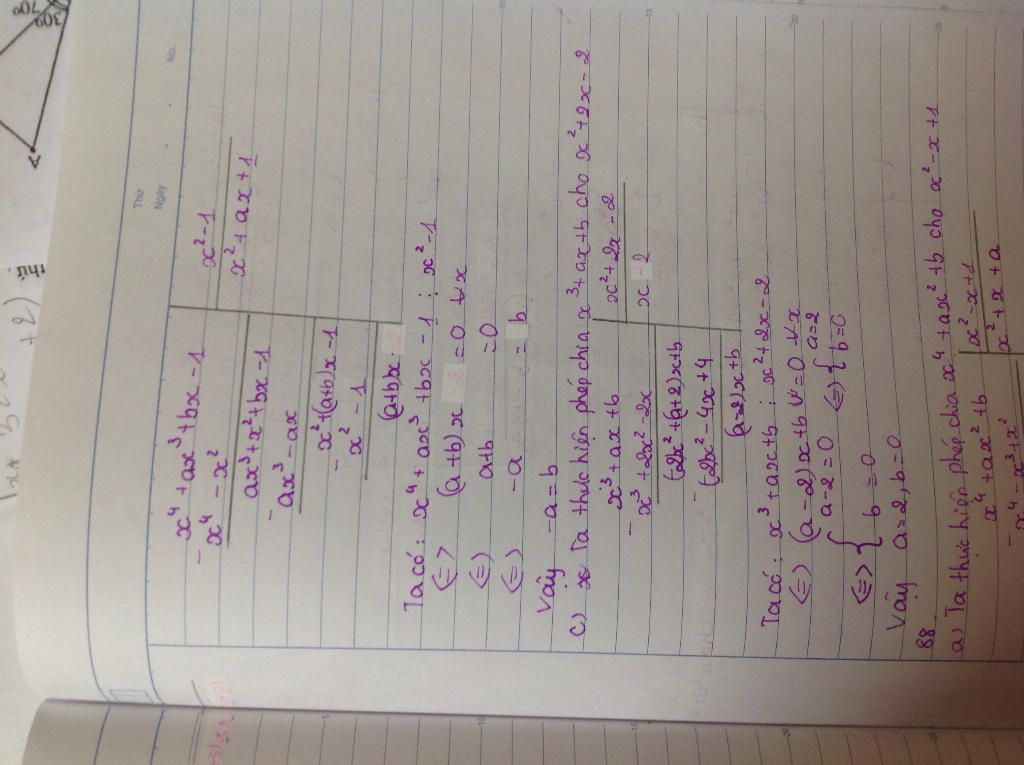 Thứ
Ngày
No.
x⁴ + ax³ + bx - 1 | x² - 1
- x⁴ - x² | x² + ax + 1
ax³ + x² + bx - 1
- ax³ - ax
x² + (a+b)x - 1
- x² - 1
(a+b)x
Ta có : x⁴ + ax³ + bx - 1 ⋮ x² - 1
(=) (a+b)x = 0 ∀x
(=) a+b = 0
(=) -a = b
Vậy -a = b
c) Ta thực hiện phép chia x³ + ax + b cho x² + 2x - 2
- x³ + ax + b | x² + 2x - 2
x³ + 2x² - 2x | x - 2
(-2x² + (a+2)x + b
- (-2x² - 4x + 4
(a-2)x + b
Ta có : x³ + ax + b ⋮ x² + 2x - 2
(=) (a-2)x + b = 0 ∀x
(=) { a-2 = 0 (=) { a = 2
b = 0 b = 0
Vậy a = 2, b = 0
88
a) Ta thực hiện phép chia x⁴ + ax² + b cho x² - x + 1
x⁴ + ax² + b | x² - x + 1
- x⁴ - x³ + x² | x² + x + a
30°
70°
A
thứ.
+ 2)